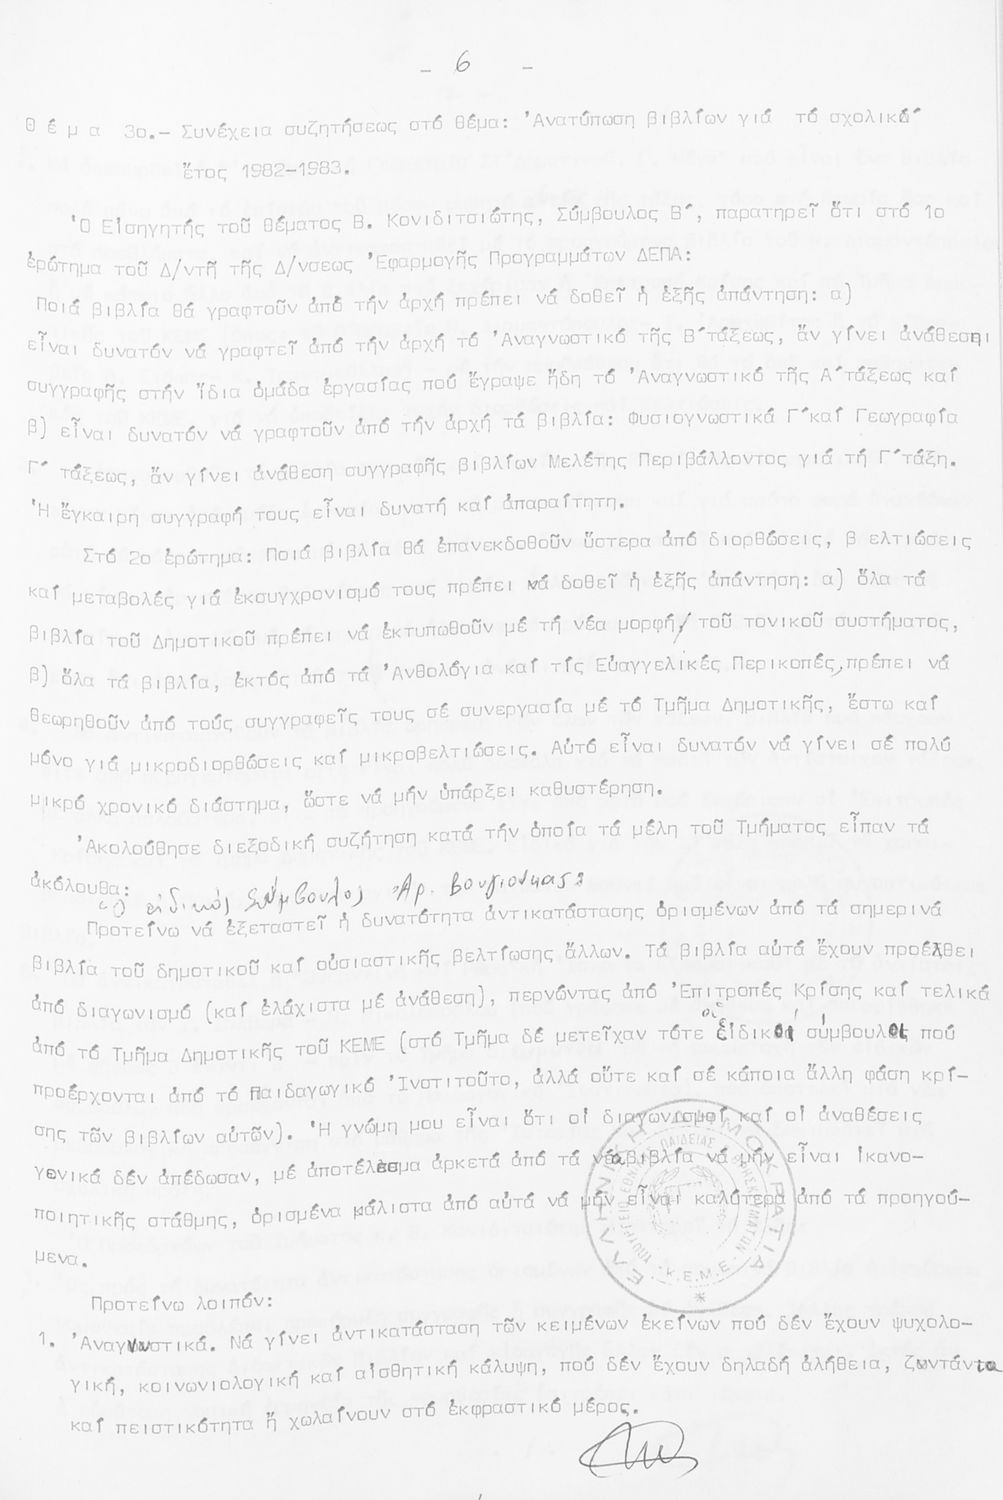 - 6 -
Θ έ μ α 3ο.- Συνέχεια συζητήσεως στό θέμα: Ἀνατύπωση βιβλίων γιά τό σχολικό
ἔτος 1982-1983.
Ὁ Εἰσηγητής τοῦ θέματος Β. Κονιδιτσιώτης, Σύμβουλος Β΄, παρατηρεῖ ὅτι στό 1ο
ἐρώτημα τοῦ Δ/ντῆ τῆς Δ/νσεως Ἐφαρμογῆς Προγραμμάτων ΔΕΠΑ:
Ποιά βιβλία θά γραφτοῦν ἀπό τήν ἀρχή πρέπει νά δοθεῖ ἡ ἑξῆς ἀπάντηση: α)
εἶναι δυνατόν νά γραφτεῖ ἀπό τήν ἀρχή τό Ἀναγνωστικό τῆς Β΄τάξεως, ἄν γίνει ἀνάθεση
συγγραφῆς στήν ἴδια ὁμάδα ἐργασίας πού ἔγραψε ἤδη τό Ἀναγνωστικό τῆς Α΄τάξεως καί
β) εἶναι δυνατόν νά γραφτοῦν ἀπό τήν ἀρχή τά βιβλία: Φυσιογνωστικά Γ΄καί Γεωγραφία
Γ΄ τάξεως, ἄν γίνει ἀνάθεση συγγραφῆς βιβλίων Μελέτης Περιβάλλοντος γιά τή Γ΄τάξη.
Ἡ ἔγκαιρη συγγραφή τους εἶναι δυνατή καί ἀπαραίτητη.
Στό 2ο ἐρώτημα: Ποιά βιβλία θά ἐπανεκδοθοῦν ὕστερα ἀπό διορθώσεις, β ελτιώσεις
καί μεταβολές γιά ἐκσυγχρονισμό τους πρέπει νά δοθεῖ ἡ ἑξῆς ἀπάντηση: α) ὅλα τά
βιβλία τοῦ Δημοτικοῦ πρέπει νά ἐκτυπωθοῦν μέ τή νέα μορφή τοῦ τονικοῦ συστήματος,
β) ὅλα τά βιβλία, ἐκτός ἀπό τά Ἀνθολόγια καί τίς Εὐαγγελικές Περικοπές, πρέπει νά
θεωρηθοῦν ἀπό τούς συγγραφεῖς τους σέ συνεργασία μέ τό Τμῆμα Δημοτικῆς, ἔστω καί
μόνο γιά μικροδιορθώσεις καί μικροβελτιώσεις. Αὐτό εἶναι δυνατόν νά γίνει σέ πολύ
μικρό χρονικό διάστημα, ὥστε νά μήν ὑπάρξει καθυστέρηση.
Ἀκολούθησε διεξοδική συζήτηση κατά τήν ὁποία τά μέλη τοῦ Τμήματος εἶπαν τά
ἀκόλουθα:
Ὁ εἰδικός Σύμβουλος Ἀρ. Βουγιούκας:
Προτείνω νά ἐξεταστεῖ ἡ δυνατότητα ἀντικατάστασης ὁρισμένων ἀπό τά σημερινά
βιβλία τοῦ δημοτικοῦ καί οὐσιαστικῆς βελτίωσης ἄλλων. Τά βιβλία αὐτά ἔχουν προέλθει
ἀπό διαγωνισμό (καί ἐλάχιστα μέ ἀνάθεση), περνώντας ἀπό Ἐπιτροπές Κρίσης καί τελικά
ἀπό τό Τμῆμα Δημοτικῆς τοῦ ΚΕΜΕ (στό Τμῆμα δέ μετεῖχαν τότε οἱ εἰδικοί σύμβουλοι πού
προέρχονται ἀπό τό Παιδαγωγικό Ἰνστιτοῦτο, ἀλλά οὔτε καί σέ κάποια ἄλλη φάση κρί-
σης τῶν βιβλίων αὐτῶν). Ἡ γνώμη μου εἶναι ὅτι οἱ διαγωνισμοί καί οἱ ἀναθέσεις
γενικά δέν ἀπέδωσαν, μέ ἀποτέλεσμα ἀρκετά ἀπό τά νέα βιβλία νά μήν εἶναι ἱκανο-
ποιητικῆς στάθμης, ὁρισμένα μάλιστα ἀπό αὐτά νά μήν εἶναι καλύτερα ἀπό τά προηγού-
μενα.
ΕΛΛΗΝΙΚΗ ΔΗΜΟΚΡΑΤΙΑ
ΥΠΟΥΡΓΕΙΟ ΕΘΝ. ΠΑΙΔΕΙΑΣ ΘΡΗΣΚΕΥΜΑΤΩΝ
Κ.Ε.Μ.Ε.
Προτείνω λοιπόν:
1. Ἀναγνωστικά. Νά γίνει ἀντικατάσταση τῶν κειμένων ἐκείνων πού δέν ἔχουν ψυχολο-
γική, κοινωνιολογική καί αἰσθητική κάλυψη, πού δέν ἔχουν δηλαδή ἀλήθεια, ζωντάνια
καί πειστικότητα ἤ χωλαίνουν στό ἐκφραστικό μέρος.